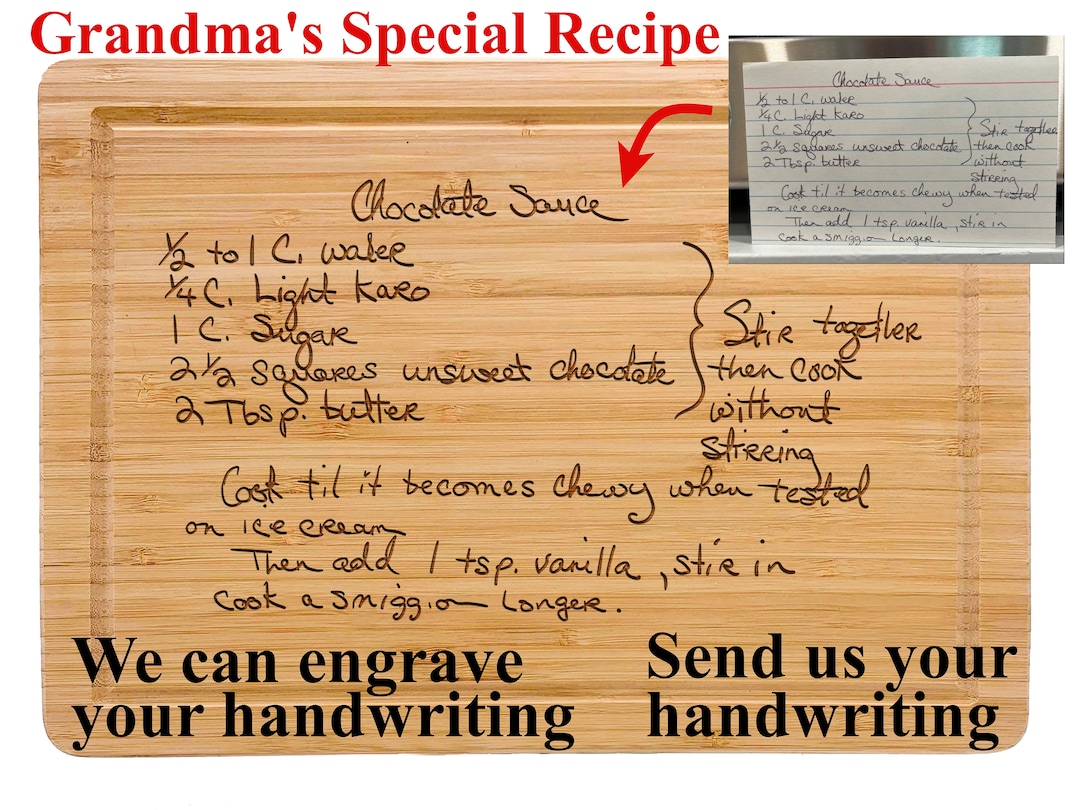 Grandma's Special Recipe
Chocolate Sauce
1/2 to 1 C. water
1/4 C. Light Karo
1 C. Sugar
2 1/2 squares unsweet chocolate
2 Tbsp. butter
Stir together
then cook
without
stirring
Cook til it becomes chewy when tested
on ice cream
Then add 1 tsp. vanilla, stir in
Cook a smiggion longer.
Chocolate Sauce
1/2 to 1 C. water
1/4 C. Light Karo
1 C. Sugar
2 1/2 squares unsweet chocolate
2 Tbsp. butter
Stir together
then cook
without
stirring
Cook til it becomes chewy when tested
on ice cream
Then add 1 tsp. vanilla, stir in
Cook a smiggion Longer.
We can engrave
your handwriting
Send us your
handwriting